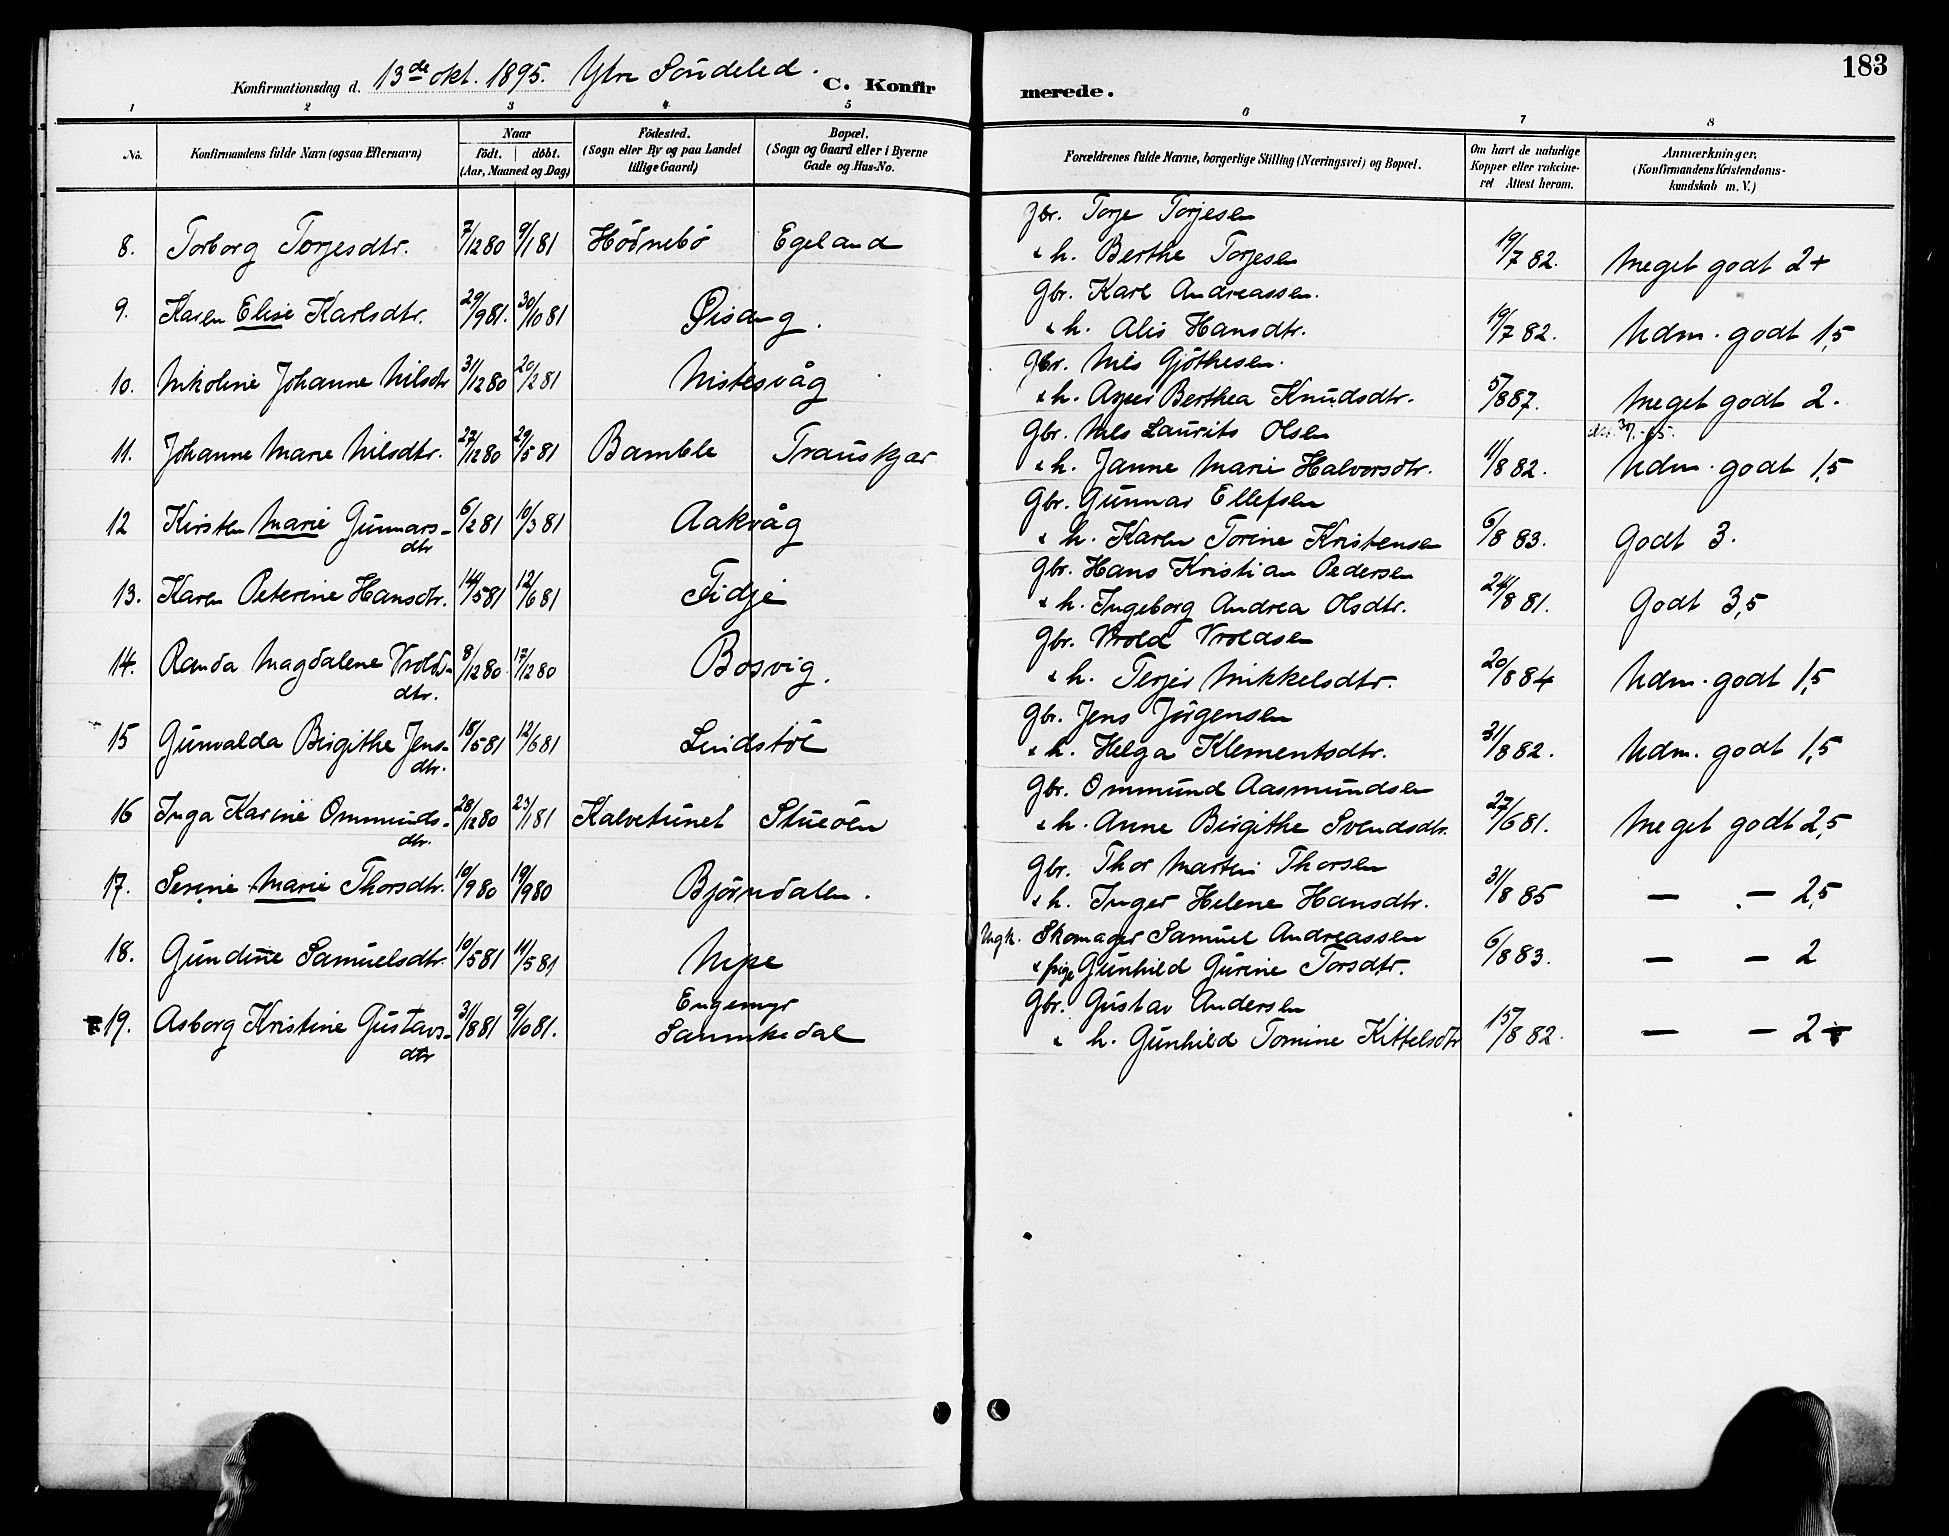 183
Konfirmationsdag d. 13de okt. 1895. Ytre Söndeled.
C. Konfirmerede.
1 2 3 4 5 6 7 8
No. Konfirmandens fulde Navn (ogsaa Efternavn) Naar födt. döbt. (Aar, Maaned og Dag) Födested. (Sogn eller By og paa Landet tillige Gaard) Bopæl. (Sogn og Gaard eller i Byerne Gade og Hus-No. Forældrenes fulde Navne, borgerlige Stilling (Næringsvei) og Bopæl. Om havt de naturlige Kopper eller vakcineret Attest herom. Anmærkninger. (Konfirmandens Kristendomskundskab m. V.)
Gbr. Torje Torjesen
8. Torborg Torjesdtr. 7/12 80 9/1 81 Hödnebö Egeland & h. Berthe Torjesen 19/7 82. Meget godt 2+
Gbr. Karl Andreassen.
9. Karen Elise Karlsdtr. 29/9 81. 30/10 81 Öisang. & h. Alis Hansdtr. 19/7 82. Udm. godt 1,5
Gbr. Nils Gjöthesen.
10. Nikoline Johanne Nilsdtr 31/12 80 20/2 81 Nistesvåg & h. Berthea Knudsdtr. 5/8 87. Meget godt 2.
Gbr. Nils Laurits Olsen
11. Johanne Marie Nilsdtr. 27/12 80 29/5 81 Bamble Trauskjær & h. Janne Marie Halvorsdtr. 11/8 82. Udm. godt 1,5
Gbr. Gunnar Ellefsen
12 Kirsten Marie Gunnars- 6/2 81 10/3 81 Aakvåg & h. Karen Torine Kristensen 6/8 83. Godt 3.
dtr
Gbr. Hans Kristian Pedersen
13. Karen Peterine Hansdtr. 14/5 81 12/6 81 Fidje & h. Ingeborg Andrea Olsdtr. 24/8 81. Godt 3,5
Gbr. Vrold Vroldsen
14. Randa Magdalene Vrolds- 8/12 80 17/12 80 Bosvig. & h. Terjer Mikkelsdtr. 20/8 84 Udm. godt 1,5
dtr.
Gbr. Jens Jörgensen
15 Gunvalda Birgithe Jens- 18/5 81 12/6 81 Lindstöl & h. Helga Klementsdtr. 31/8 82. Udm. godt 1,5
dtr.
Gbr. Ommund Aasmundsen
16 Inga Karine Ommunds- 28/12 80 23/1 81 Kalvetunet Stueöen & h. Anne Birgithe Svendsdtr. 27/6 81. Meget godt 2,5
dtr.
Gbr. Thor Martin Thorsen
17. Serine Marie Thorsdtr. 10/9 80 19/9 80 Björndalen. & h. Inger Helene Hansdtr. 31/8 85 — - — 2,5
Ungk. Skomager Samuel Andreassen
18. Gundine Samuelsdtr. 10/5 81 11/5 81 Nipe & pige Gunhild Gurine Torsdtr. 6/8 83. — — 2
Engemyr Gbr. Gustav Andersen
19. Asborg Kristine Gustavs- 31/8 81 9/10 81. Sannikedal & h. Gunhild Tomine Kittelsdtr 15/8 82. — — 2+
dtr